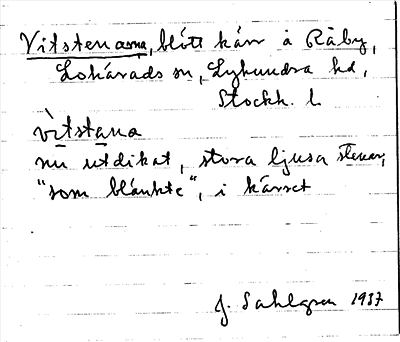 Vitstenarna, blött kärr å Råby,
Lohärads sn, Lyhundra hd,
Stockh. l.
vìtstana
nu utdikat, stora ljusa stenar,
"som blänkte", i kärret
J. Sahlgren 1937